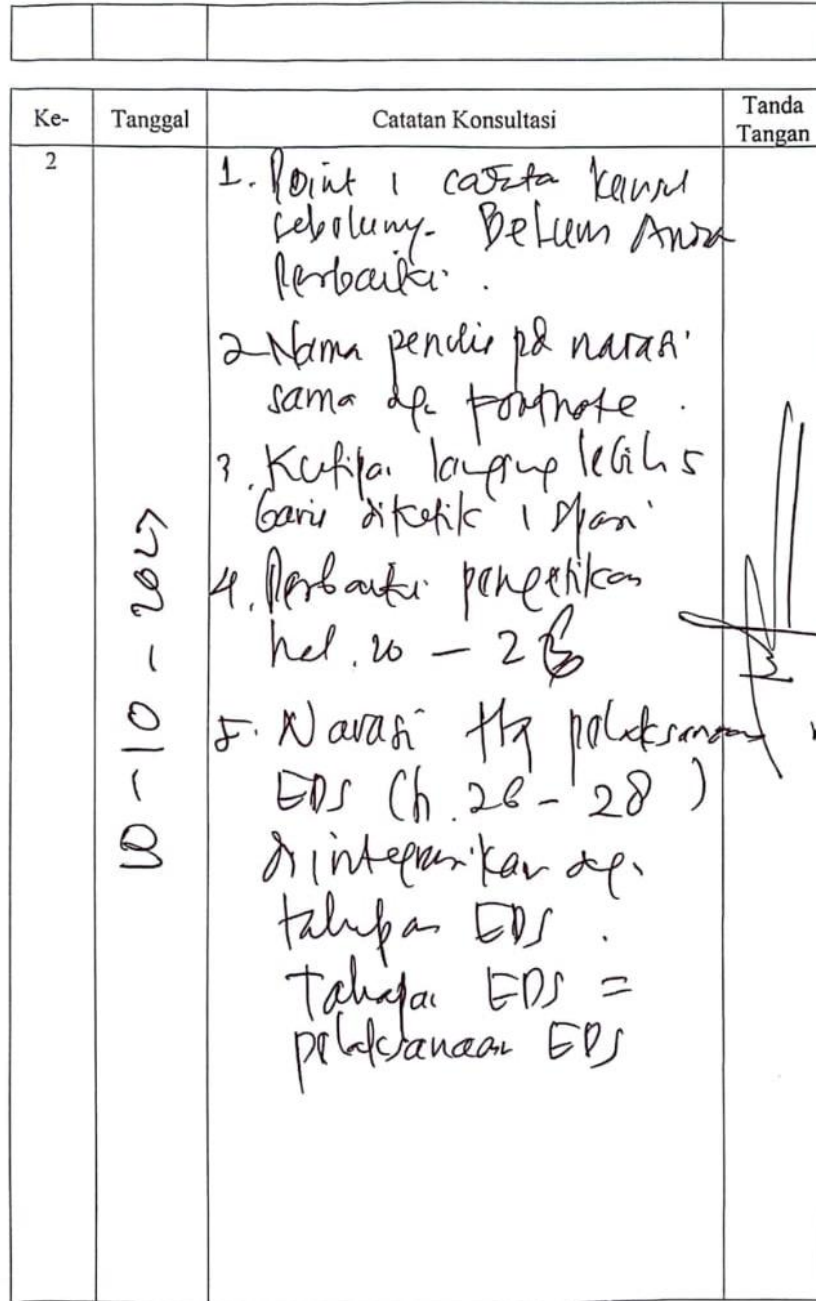 Ke- Tanggal Catatan Konsultasi Tanda Tangan
2
1. Point 1 catata konsul
sebelumy. Belum Anda
Perbaiki.
2 Nama penulis pd narasi
sama dg. footnote.
3. Kutipa. langsung lebih 5
baris diketik 1 spasi
4. Perbaiki pengetikan
hal. 20 - 2
5. Narasi ttg pelaksanaan
EDS (h. 26 - 28)
diintegrasikan dg.
tahapan EDS.
Tahapa EDS =
pelaksanaan EDS
-10-